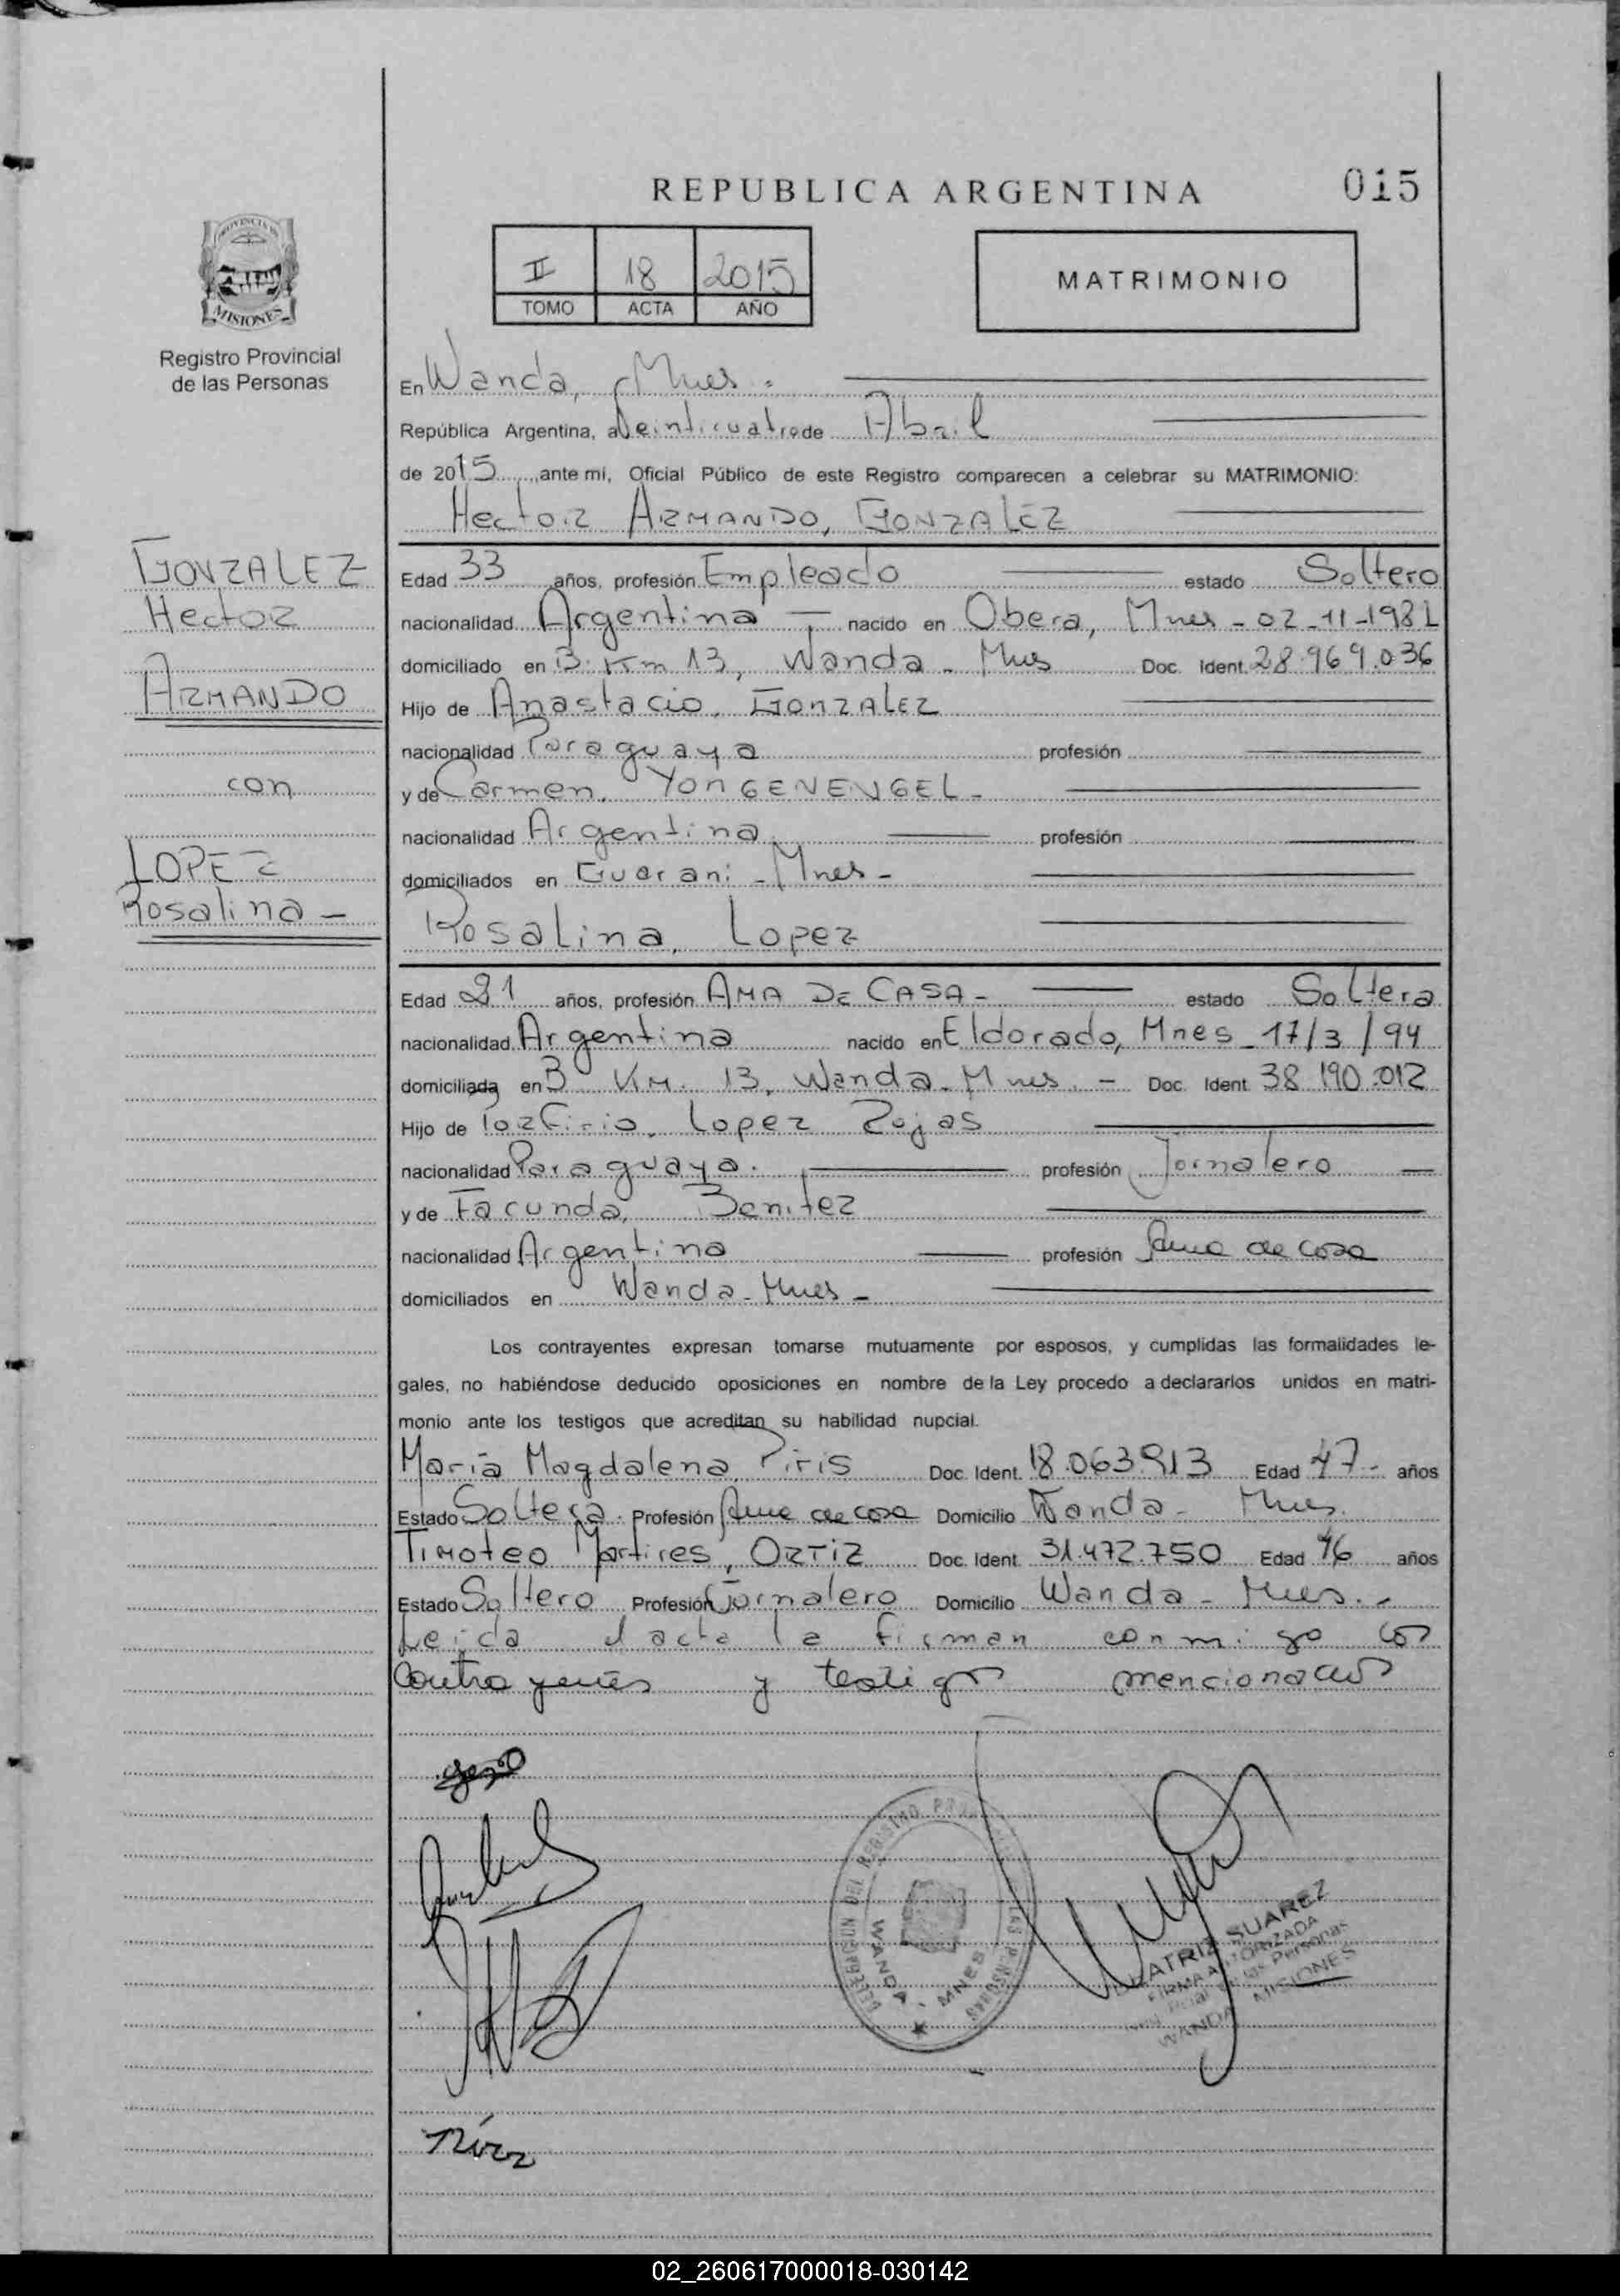 REPUBLICA ARGENTINA
015
PROVINCIA DE
MISIONES
Registro Provincial
de las Personas
II 18 2015
TOMO ACTA AÑO
MATRIMONIO
En Wanda, Mnes.
República Argentina, a Veinticuatro de Abril
de 2015, ante mi, Oficial Público de este Registro comparecen a celebrar su MATRIMONIO:
Hector ARMANDO, GONZALEZ
GONZALEZ
Hector
ARMANDO
con
LOPEZ
Rosalina -
Edad 33 años, profesión Empleado estado Soltero
nacionalidad Argentina nacido en Obera, Mnes - 02-11-1981
domiciliado en B: Km 13, Wanda - Mnes Doc. Ident. 28.969.036
Hijo de Anastacio, GONZALEZ
nacionalidad Paraguaya profesión
y de Carmen, YONGENENGEL -
nacionalidad Argentina profesión
domiciliados en Guarani - Mnes -
Rosalina, Lopez
Edad 21 años, profesión AMA DE CASA - estado Soltera
nacionalidad Argentina nacido en Eldorado, Mnes - 17/3/94
domiciliada en B KM. 13, Wanda - Mnes. - Doc. Ident. 38.190.012
Hijo de Porfirio, Lopez Rojas
nacionalidad Paraguaya. profesión Jornalero
y de Facunda, Benitez
nacionalidad Argentina profesión Ama de casa
domiciliados en Wanda - Mnes -
Los contrayentes expresan tomarse mutuamente por esposos, y cumplidas las formalidades le-
gales, no habiéndose deducido oposiciones en nombre de la Ley procedo a declararlos unidos en matri-
monio ante los testigos que acreditan su habilidad nupcial.
Maria Magdalena, Piris Doc. Ident. 18.063.913 Edad 47 - años
Estado Soltera. Profesión Ama de casa Domicilio Wanda - Mnes.
Timoteo Martires, ORTIZ Doc. Ident. 31.472.750 Edad 46 años
Estado Soltero Profesión Jornalero Domicilio Wanda - Mnes. -
Leida el acta la firman conmigo los
Contrayentes y testigos mencionados
DELEGACION DEL REGISTRO PROVINCIAL DE LAS PERSONAS
WANDA - MNES
BEATRIZ SUAREZ
FIRMA AUTORIZADA
Reg. Pcial. de las Personas
WANDA MISIONES
02_260617000018-030142